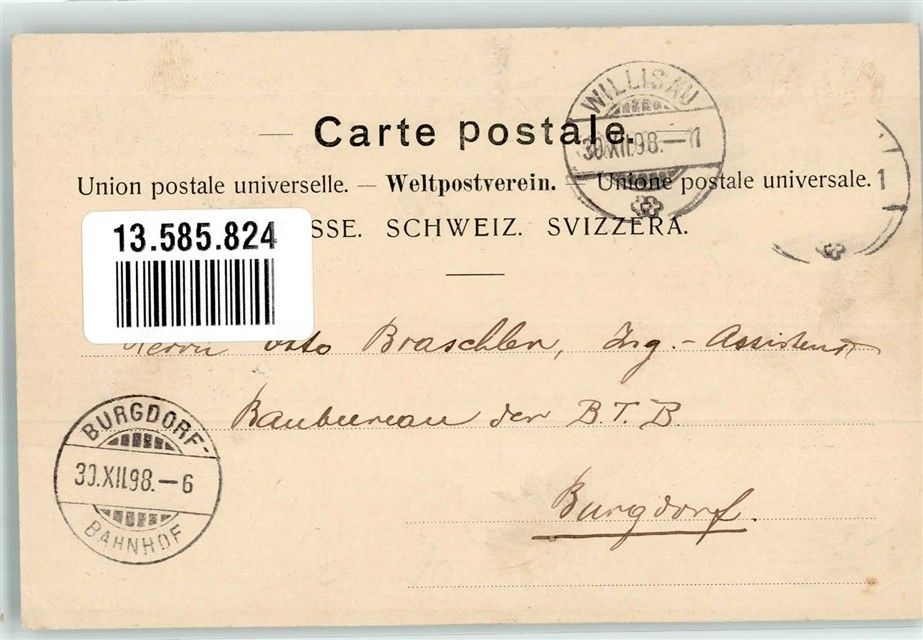 WILLISAU
30.XII.98.—11
Carte postale.
Union postale universelle. — Weltpostverein. — Unione postale universale.
1
13.585.824
SSE. SCHWEIZ. SVIZZERA.
Herrn Otto Braschler, Ing.-Assistent
Baubureau der B.T.B.
BURGDORF
30.XII.98.—6
BAHNHOF
Burgdorf.